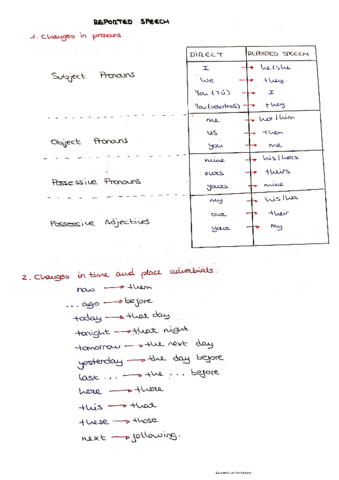 REPORTED SPEECH
1. Changes in pronouns
DIRECT REPORTED SPEECH
Subject Pronouns
I → he/she
We → they
You (Tú) → I
You (vosotros) → they
Object Pronouns
me → her/him
us → them
you → me
Possessive Pronouns
mine → his/hers
ours → theirs
yours → mine
Possessive Adjectives
my → his/her
our → their
your → my
2. Changes in time and place adverbials.
now → them
... ago → before
today → that day
tonight → that night
tomorrow → the next day
yesterday → the day before
last ... → the ... before
here → there
this → that
these → those
next → following.